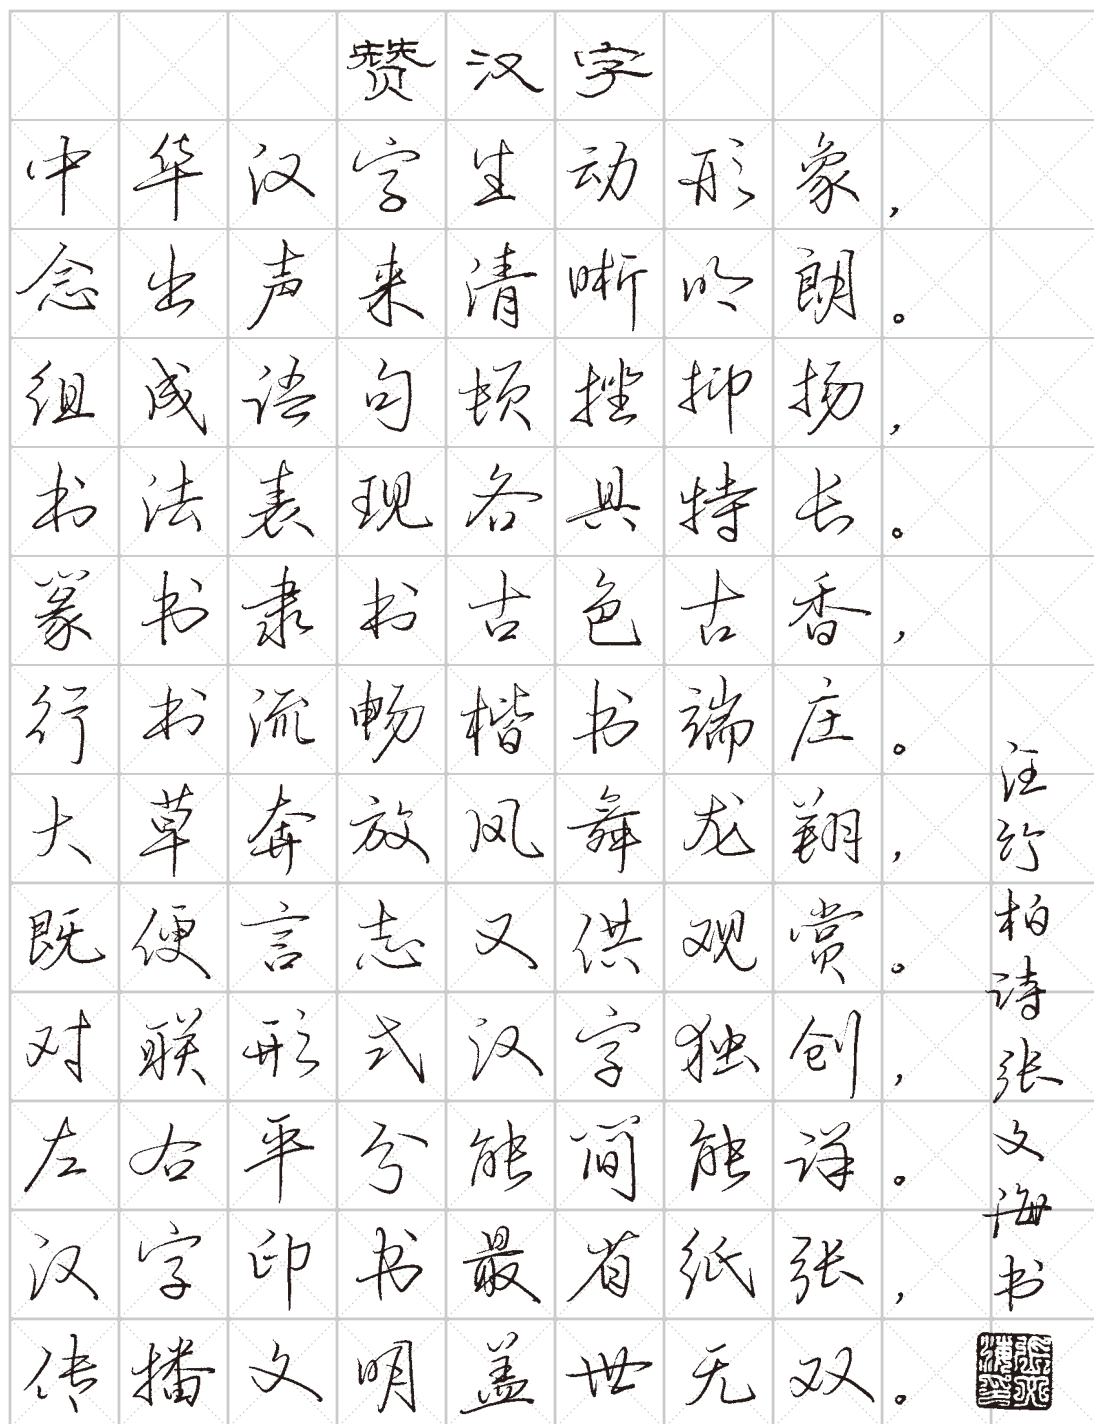 赞汉字
中华汉字生动形象，
念出声来清晰明朗。
组成语句顿挫抑扬，
书法表现各具特长。
篆书隶书古色古香，
行书流畅楷书端庄。
大草奔放凤舞龙翔，
既便言志又供观赏。
对联形式汉字独创，
左右平分能简能详。
汉字印书最省纸张，
传播文明盖世无双。
汪竹柏诗张文海书